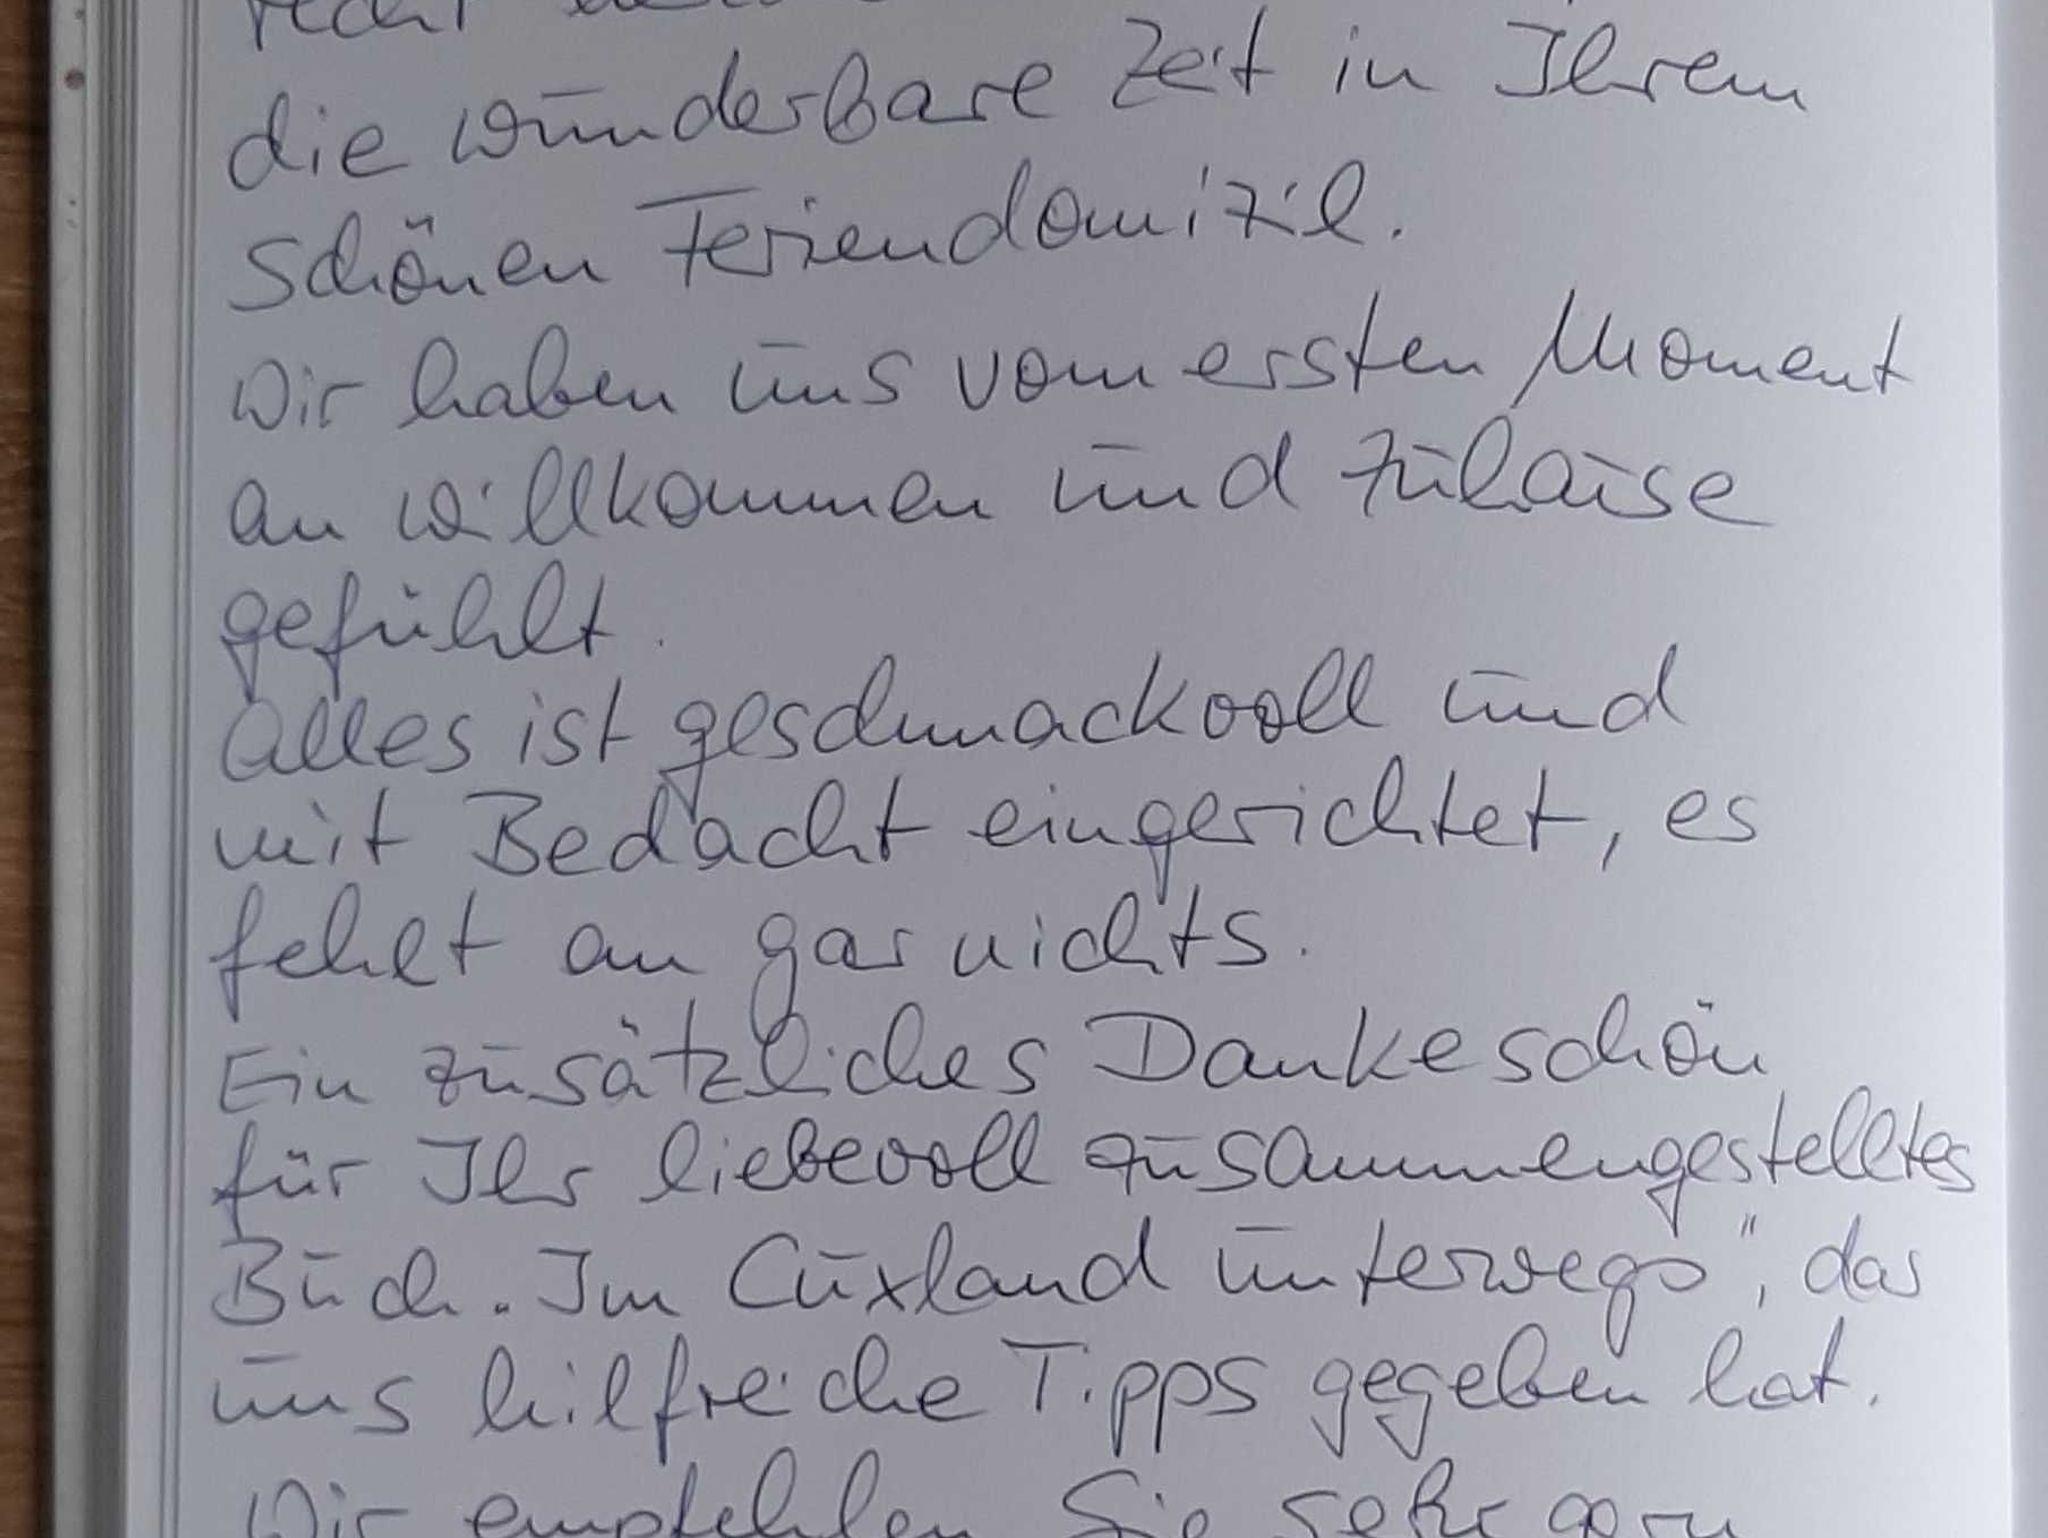 recht
die wunderbare Zeit in Ihrem
schönen Feriendomizil.
Wir haben uns vom ersten Moment
an willkommen und zuhause
gefühlt.
Alles ist geschmackvoll und
mit Bedacht eingerichtet, es
fehlt an gar nichts.
Ein zusätzliches Dankeschön
für Ihr liebevoll zusammengestelltes
Buch „Im Cuxland unterwegs", das
uns hilfreiche Tipps gegeben hat.
Wir empfehlen Sie sehr gern